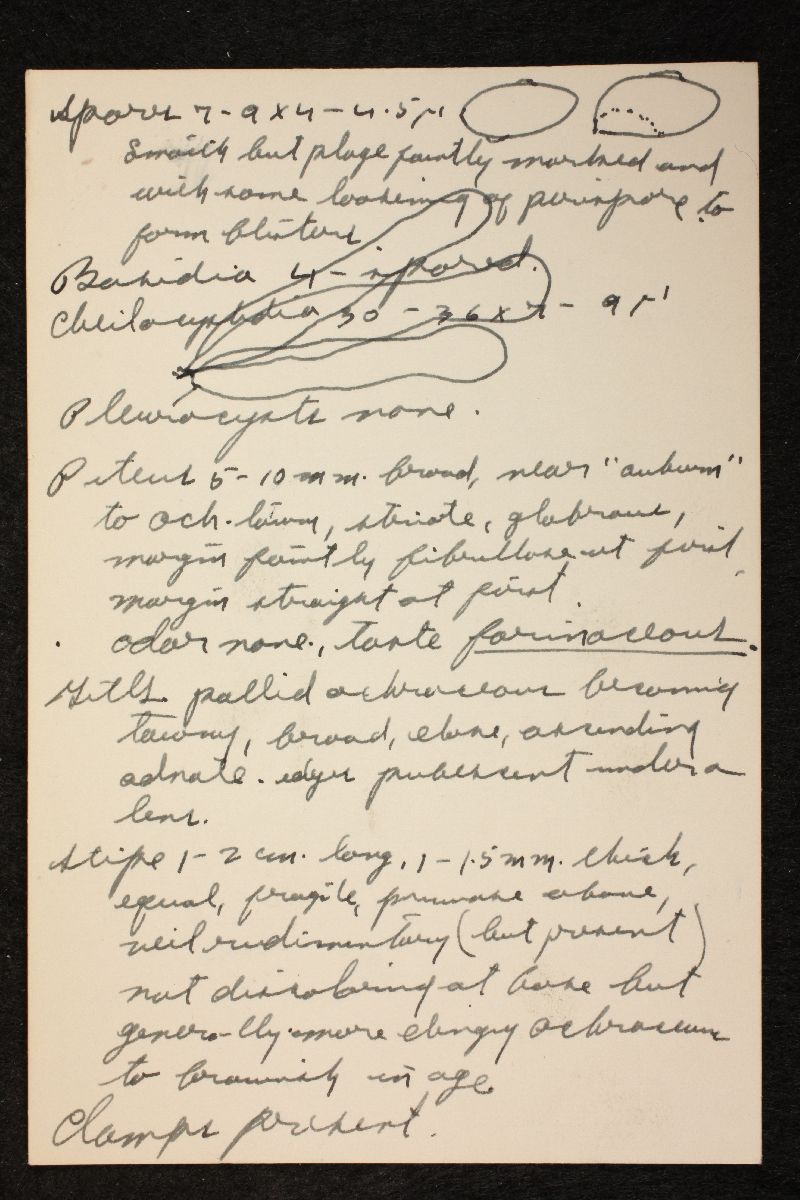 Spores 7-9 x 4-4.5 μ
Smooth but plage faintly marked and
with some loosening of perispore to
form blisters
Basidia 4-spored.
Cheilocystidia 30-36 x 7-9 μ
Pleurocysts none.
Pileus 5-10 mm. broad, near "auburn"
to och. tawny, striate, glabrous,
margin faintly fibrillose at first,
margin straight at first.
odor none., taste farinaceous.
Gills pallid ochraceous becoming
tawny, broad, close, ascending
adnate. edges pubescent under a
lens.
Stipe 1-2 cm. long, 1-1.5 mm. thick,
equal, fragile, pruinose above,
veil rudimentary (but present)
not discoloring at base but
generally more dingy ochraceous
to brownish in age
Clamps present.